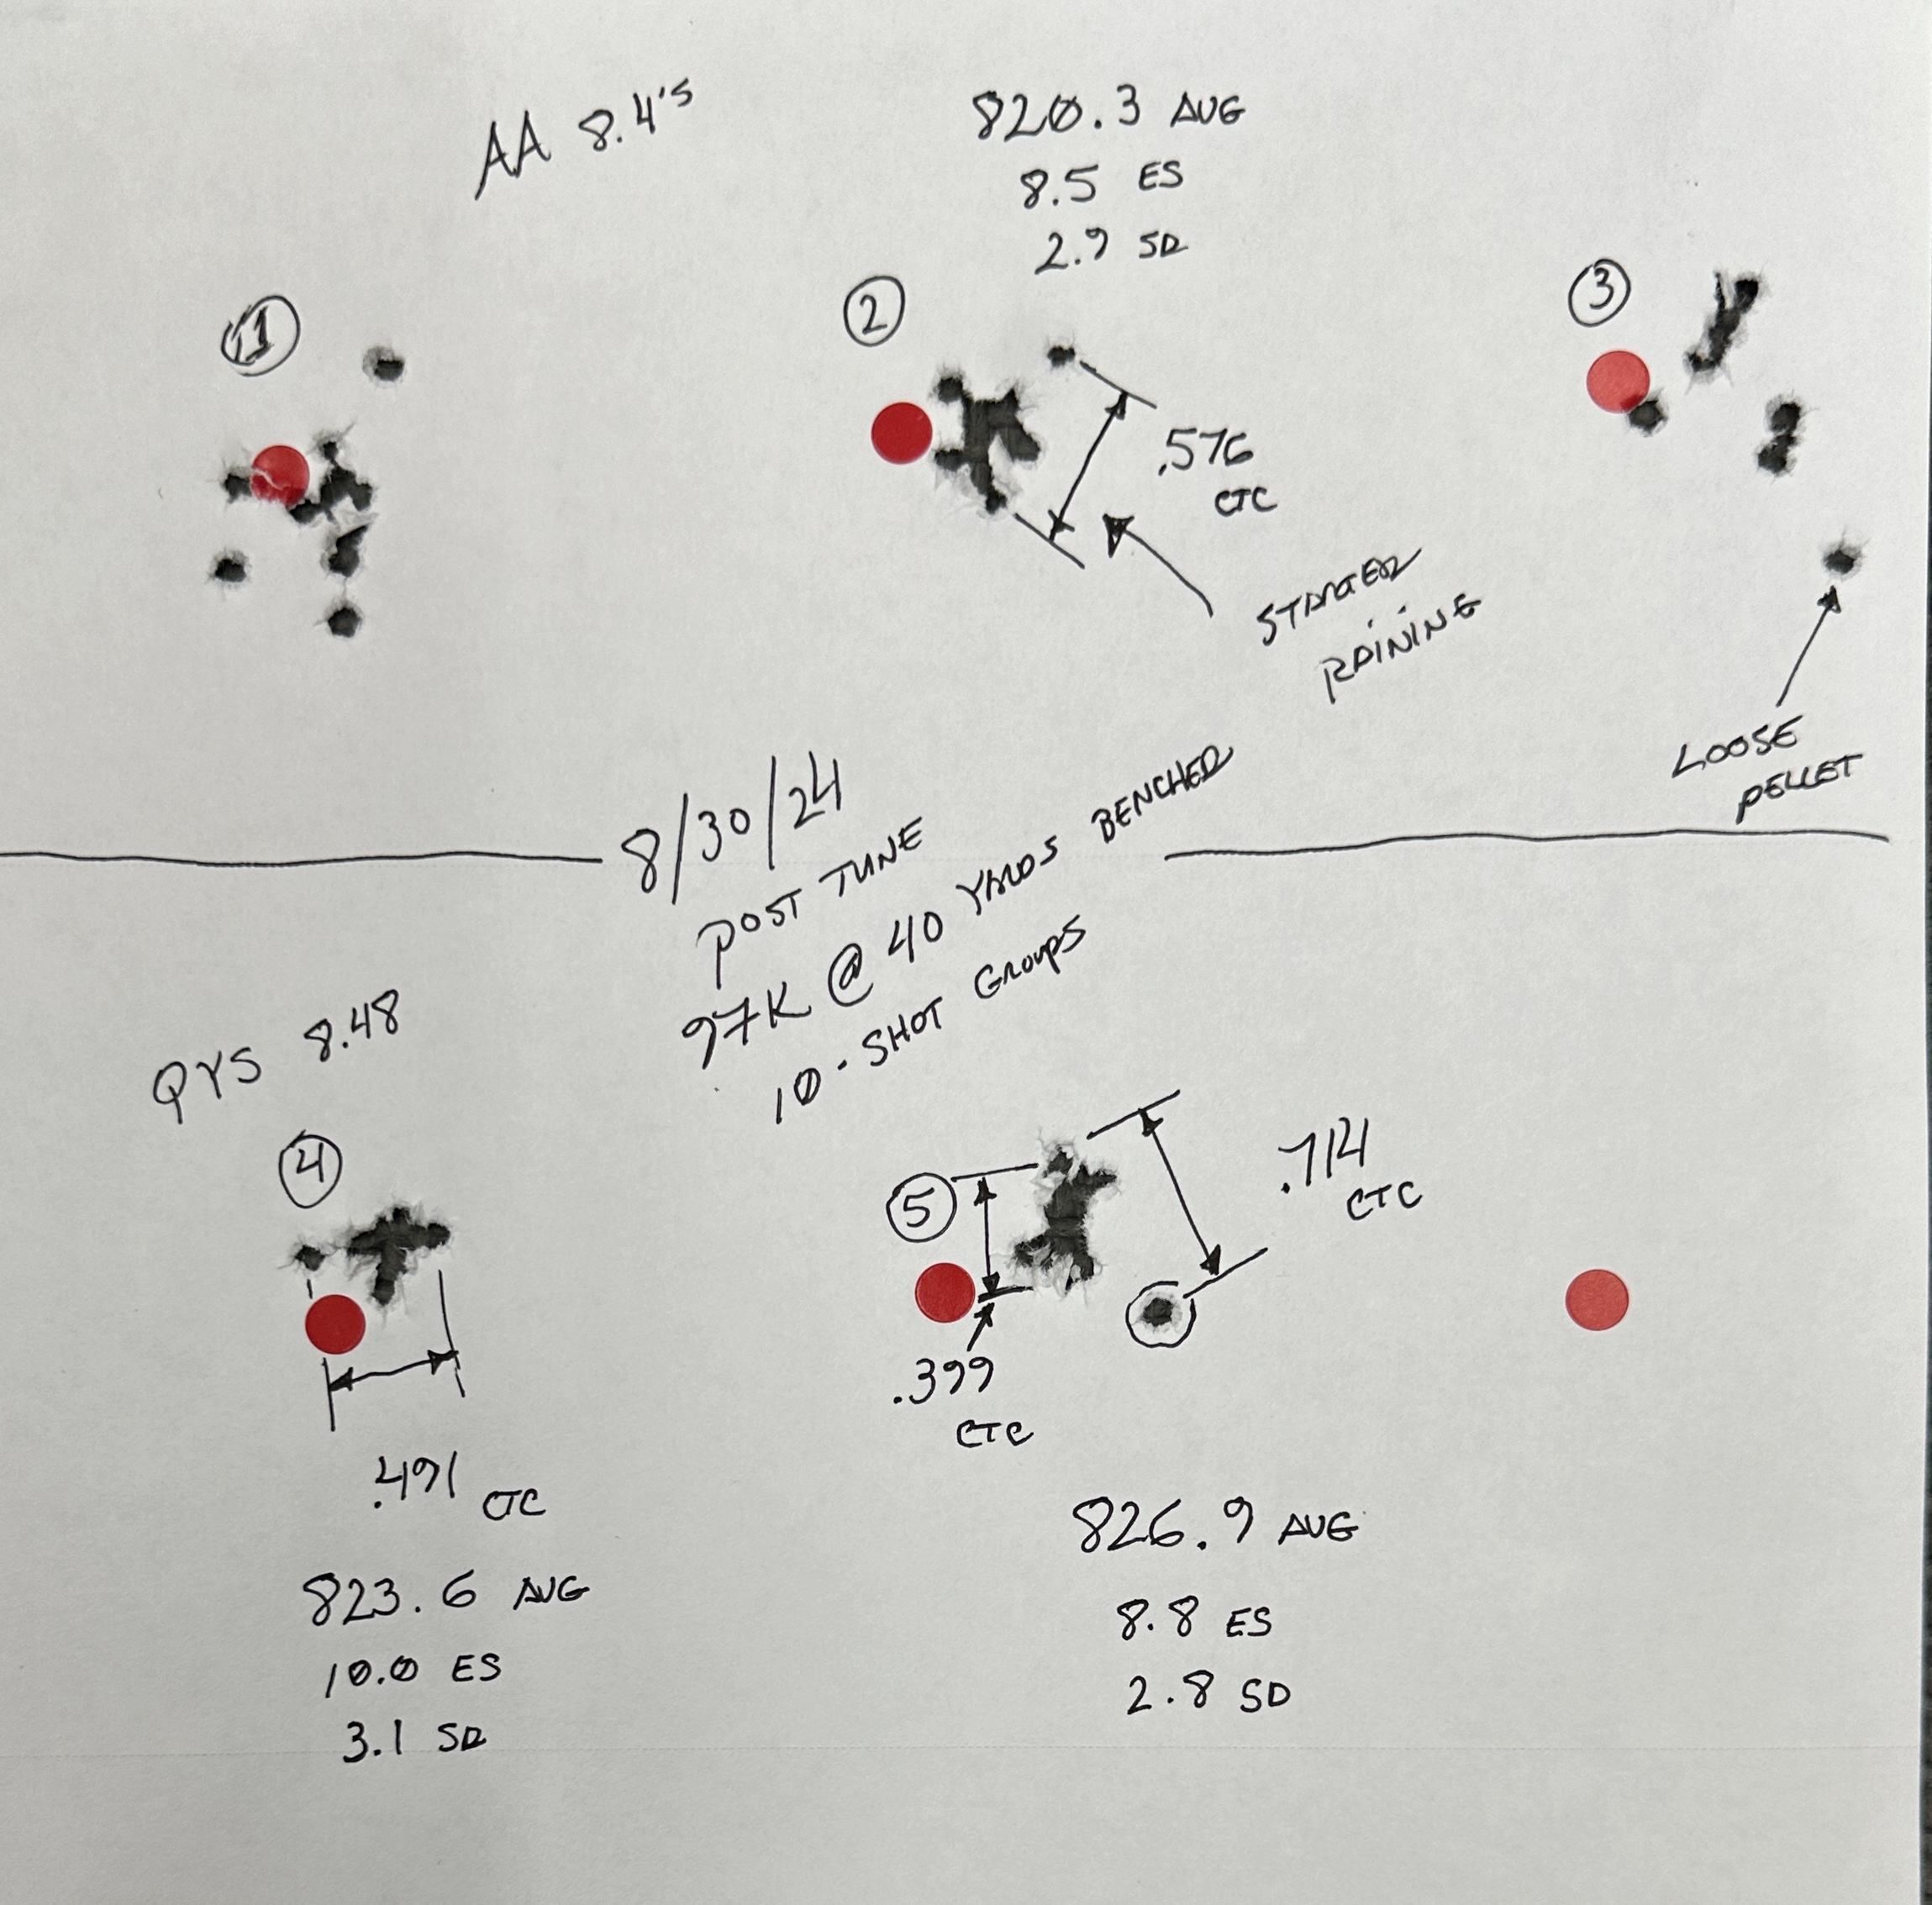 AA 8.4's
820.3 AVG
8.5 ES
2.9 SD
1
2
3
.576
CTC
STARTED
RAINING
LOOSE
PELLET
8/30/24
POST TUNE
97K @ 40 YARDS BENCHED
10-SHOT GROUPS
QYS 8.48
4
.491 CTC
823.6 AVG
10.0 ES
3.1 SD
5
.714
CTC
.399
CTC
826.9 AVG
8.8 ES
2.8 SD